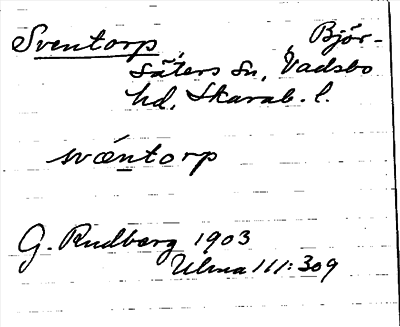 Sventorp, Björ-
säters sn, Vadsbo
hd, Skarab. l.
svæntorp
G. Rudberg 1903
Ulma 111:309